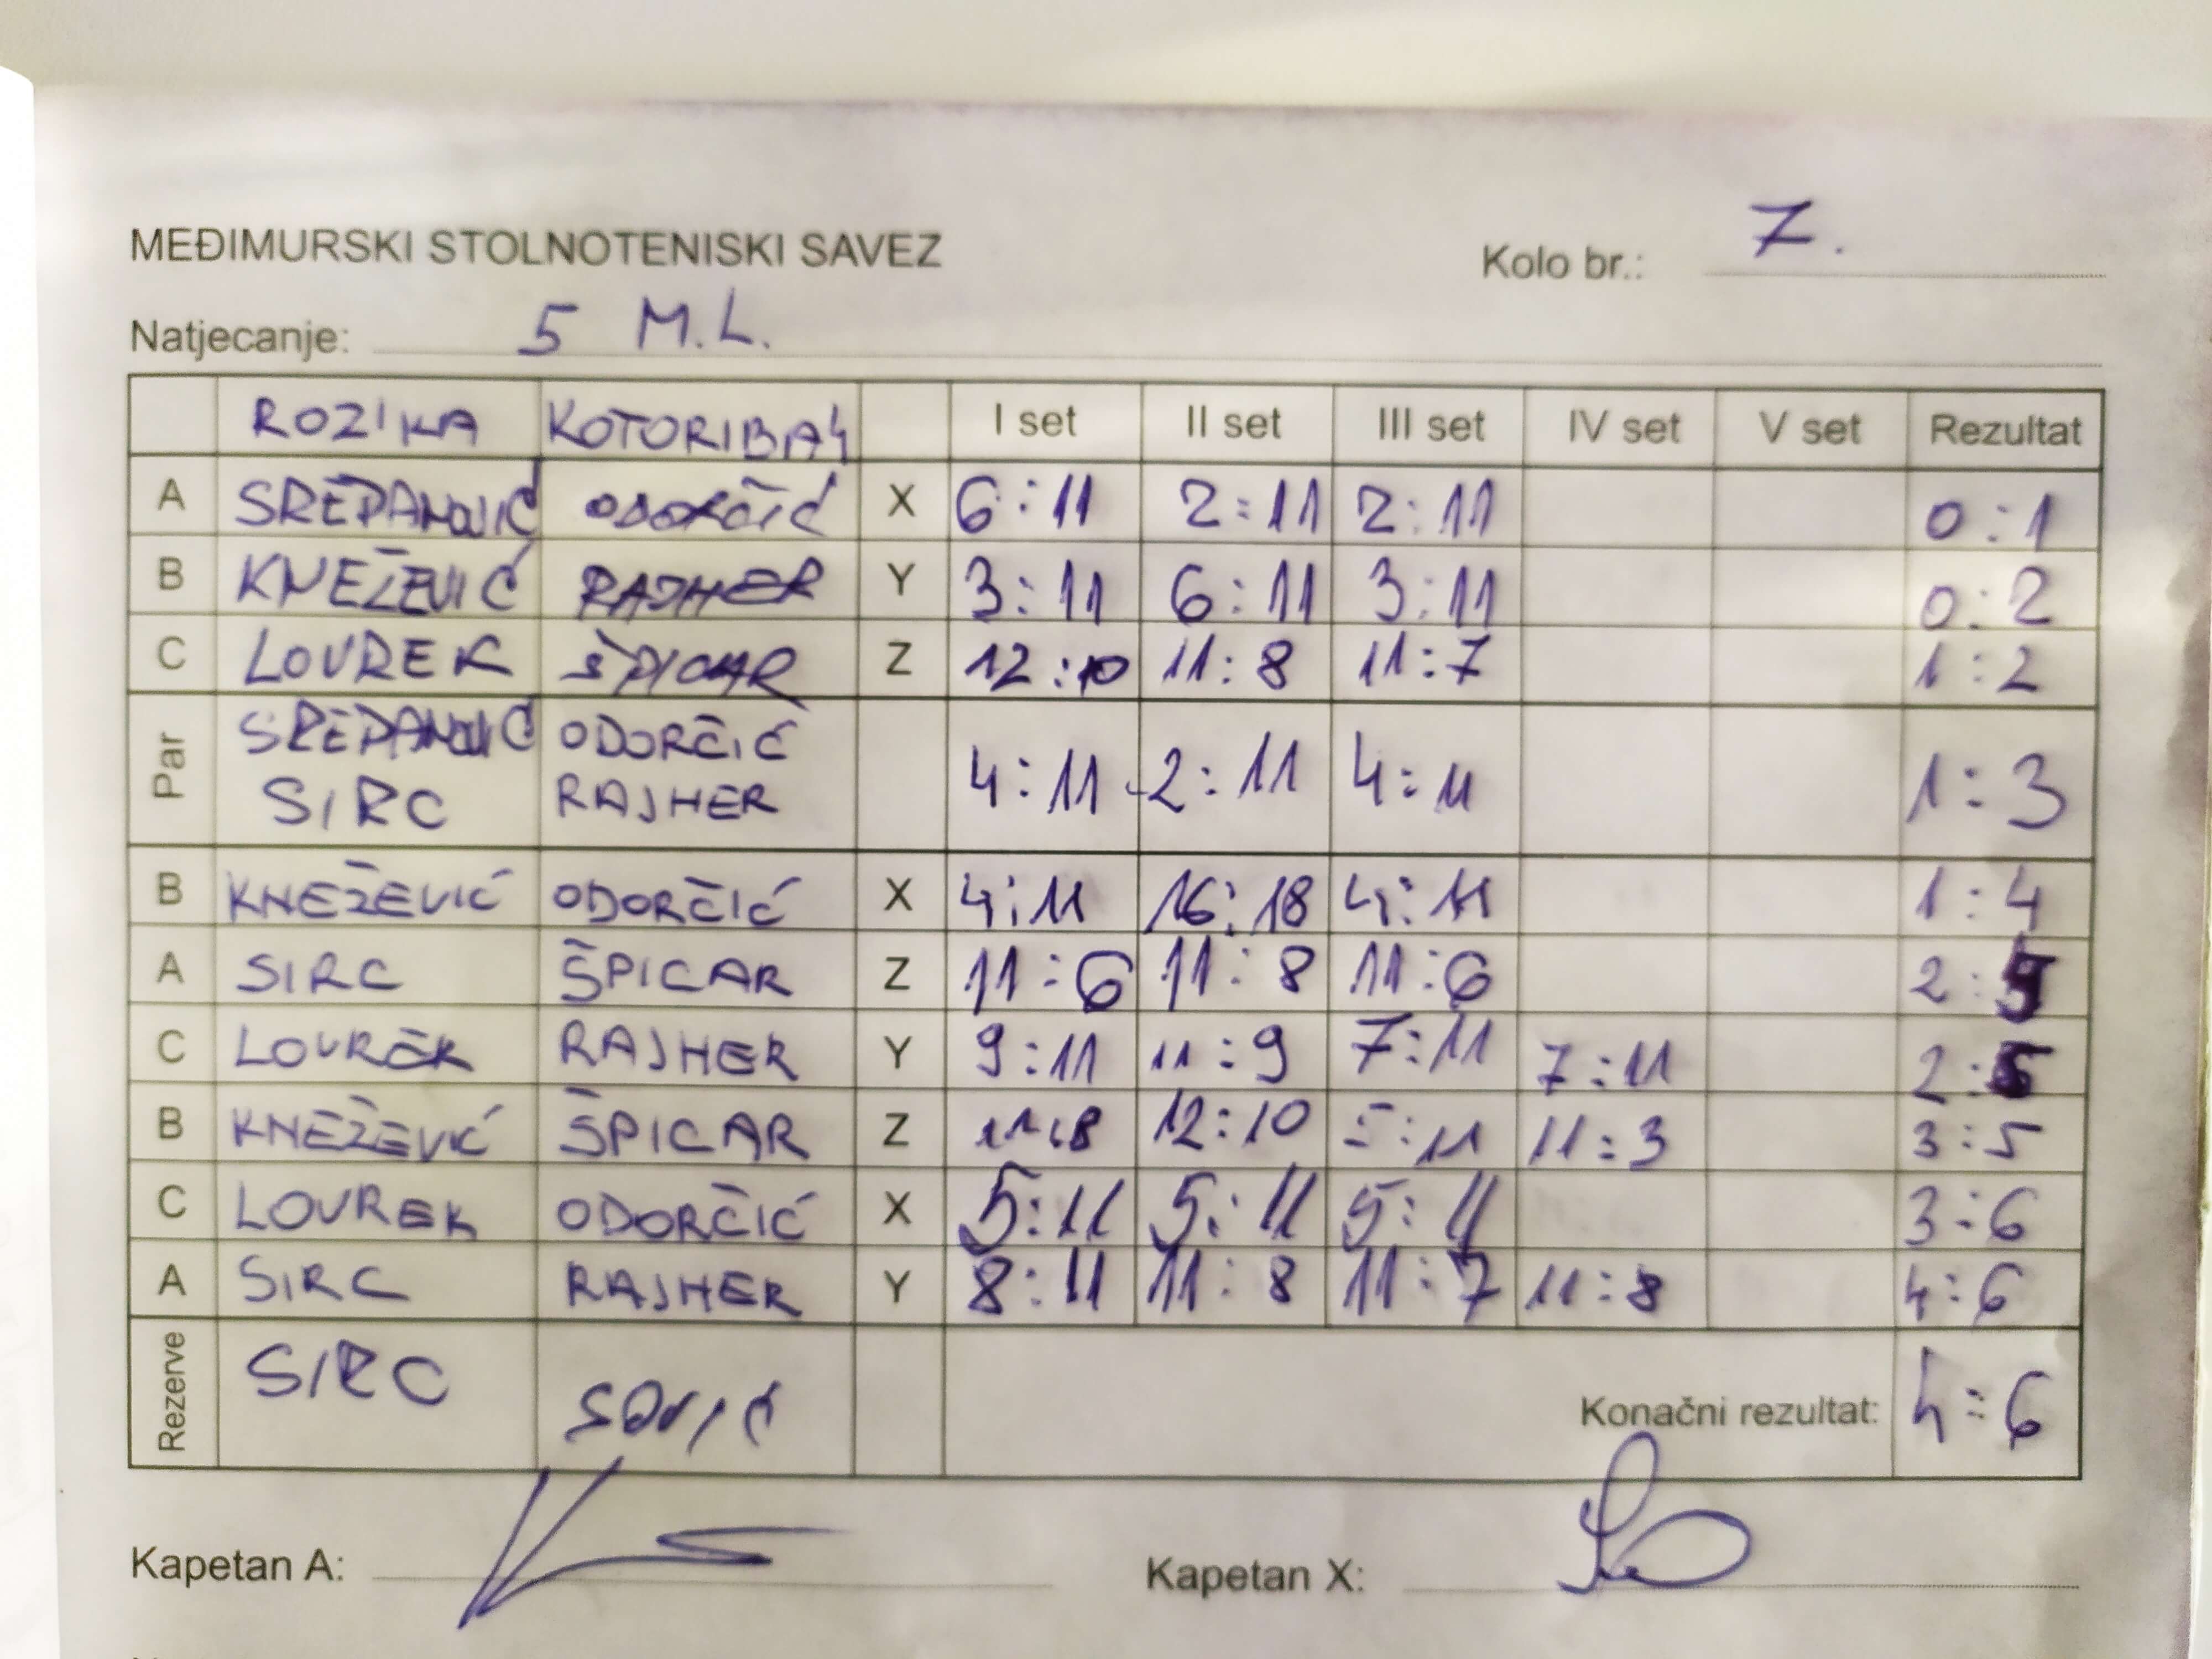 MEĐIMURSKI STOLNOTENISKI SAVEZ Kolo br.: 7.
Natjecanje: 5 M.L.
ROZIKA KOTORIBA4 I set II set III set IV set V set Rezultat
A SREPANOVIĆ ODORČIĆ X 6:11 2:11 2:11 0:1
B KNEŽEVIĆ RAJHER Y 3:11 6:11 3:11 0:2
C LOVREK ŠPICAR Z 12:10 11:8 11:7 1:2
Par SREPANOVIĆ ODORČIĆ 4:11 2:11 4:11 1:3
SIRC RAJHER
B KNEŽEVIĆ ODORČIĆ X 4:11 16:18 4:11 1:4
A SIRC ŠPICAR Z 11:6 11:8 11:6 2:
C LOVREK RAJHER Y 9:11 11:9 7:11 7:11 2:5
B KNEŽEVIĆ ŠPICAR Z 11:8 12:10 5:11 11:3 3:5
C LOVREK ODORČIĆ X 5:11 5:11 5:11 3:6
A SIRC RAJHER Y 8:11 11:8 11:7 11:8 4:6
Rezerve SIRC Konačni rezultat: 4:6
Kapetan A: Kapetan X: